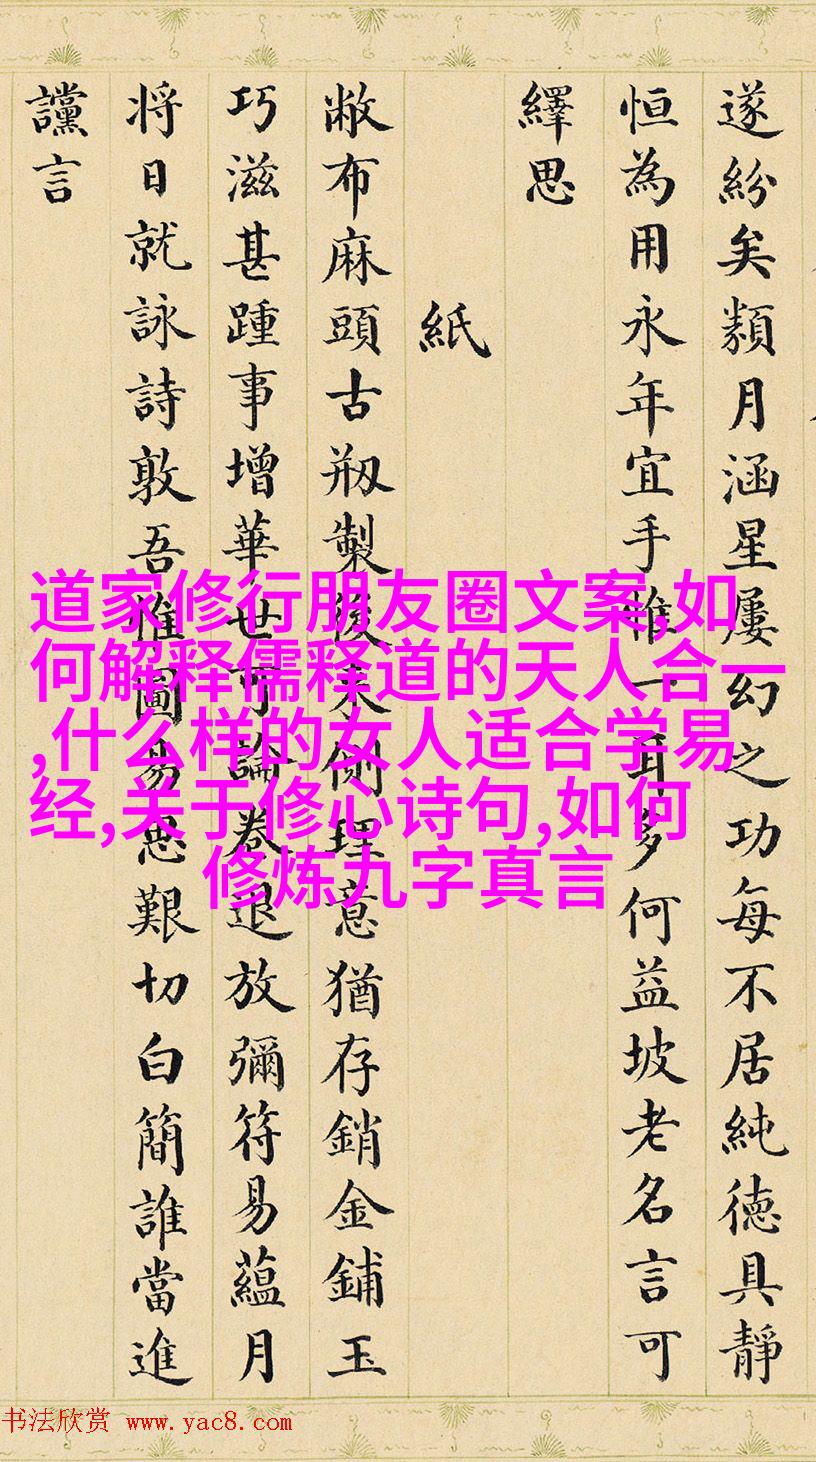 遂紛矣類月涵星屢幻之功每不居純德具靜
恒為用永年宜手惟一耳多何益坡老名言可
繹思
紙
敝布麻頭古剏製後來側理意猶存銷金鋪玉
巧滋甚踵事增華世可論卷退放彌符易蘊月
将日就詠詩敦吾惟圖易思艱切白簡誰當進
讜言
道家修行朋友圈文案,如
何解释儒释道的天人合一
,什么样的女人适合学易
经,关于修心诗句,如何
修炼九字真言
书法欣赏 www.yac8.com